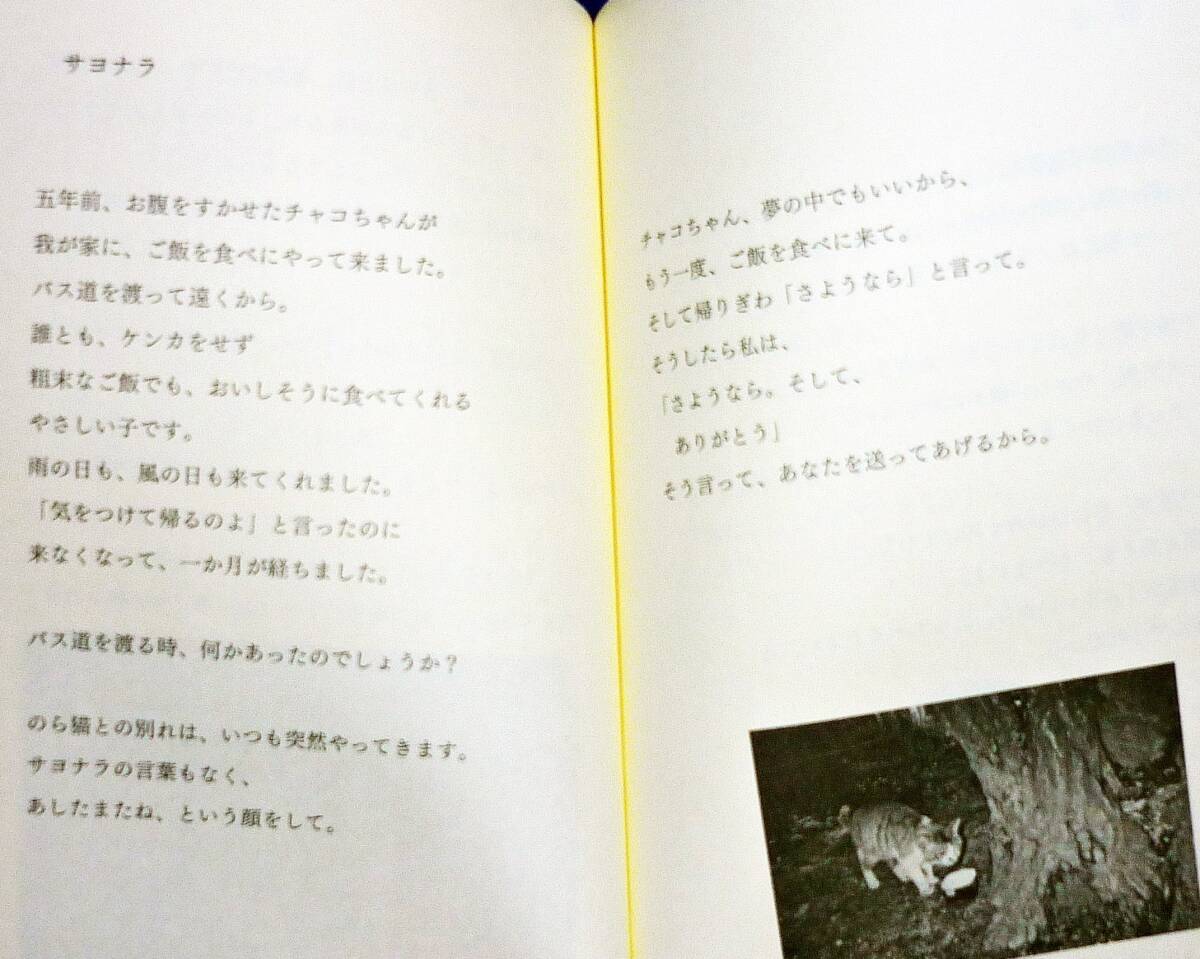 サヨナラ
五年前、お腹をすかせたチャコちゃんが
我が家に、ご飯を食べにやって来ました。
バス道を渡って遠くから。
誰とも、ケンカをせず
粗末なご飯でも、おいしそうに食べてくれる
やさしい子です。
雨の日も、風の日も来てくれました。
「気をつけて帰るのよ」と言ったのに
来なくなって、一か月が経ちました。
バス道を渡る時、何かあったのでしょうか？
のら猫との別れは、いつも突然やってきます。
サヨナラの言葉もなく、
あしたまたね、という顔をして。
チャコちゃん、夢の中でもいいから、
もう一度、ご飯を食べに来て。
そして帰りぎわ「さようなら」と言って。
そうしたら私は、
「さようなら。そして、
ありがとう」
そう言って、あなたを送ってあげるから。